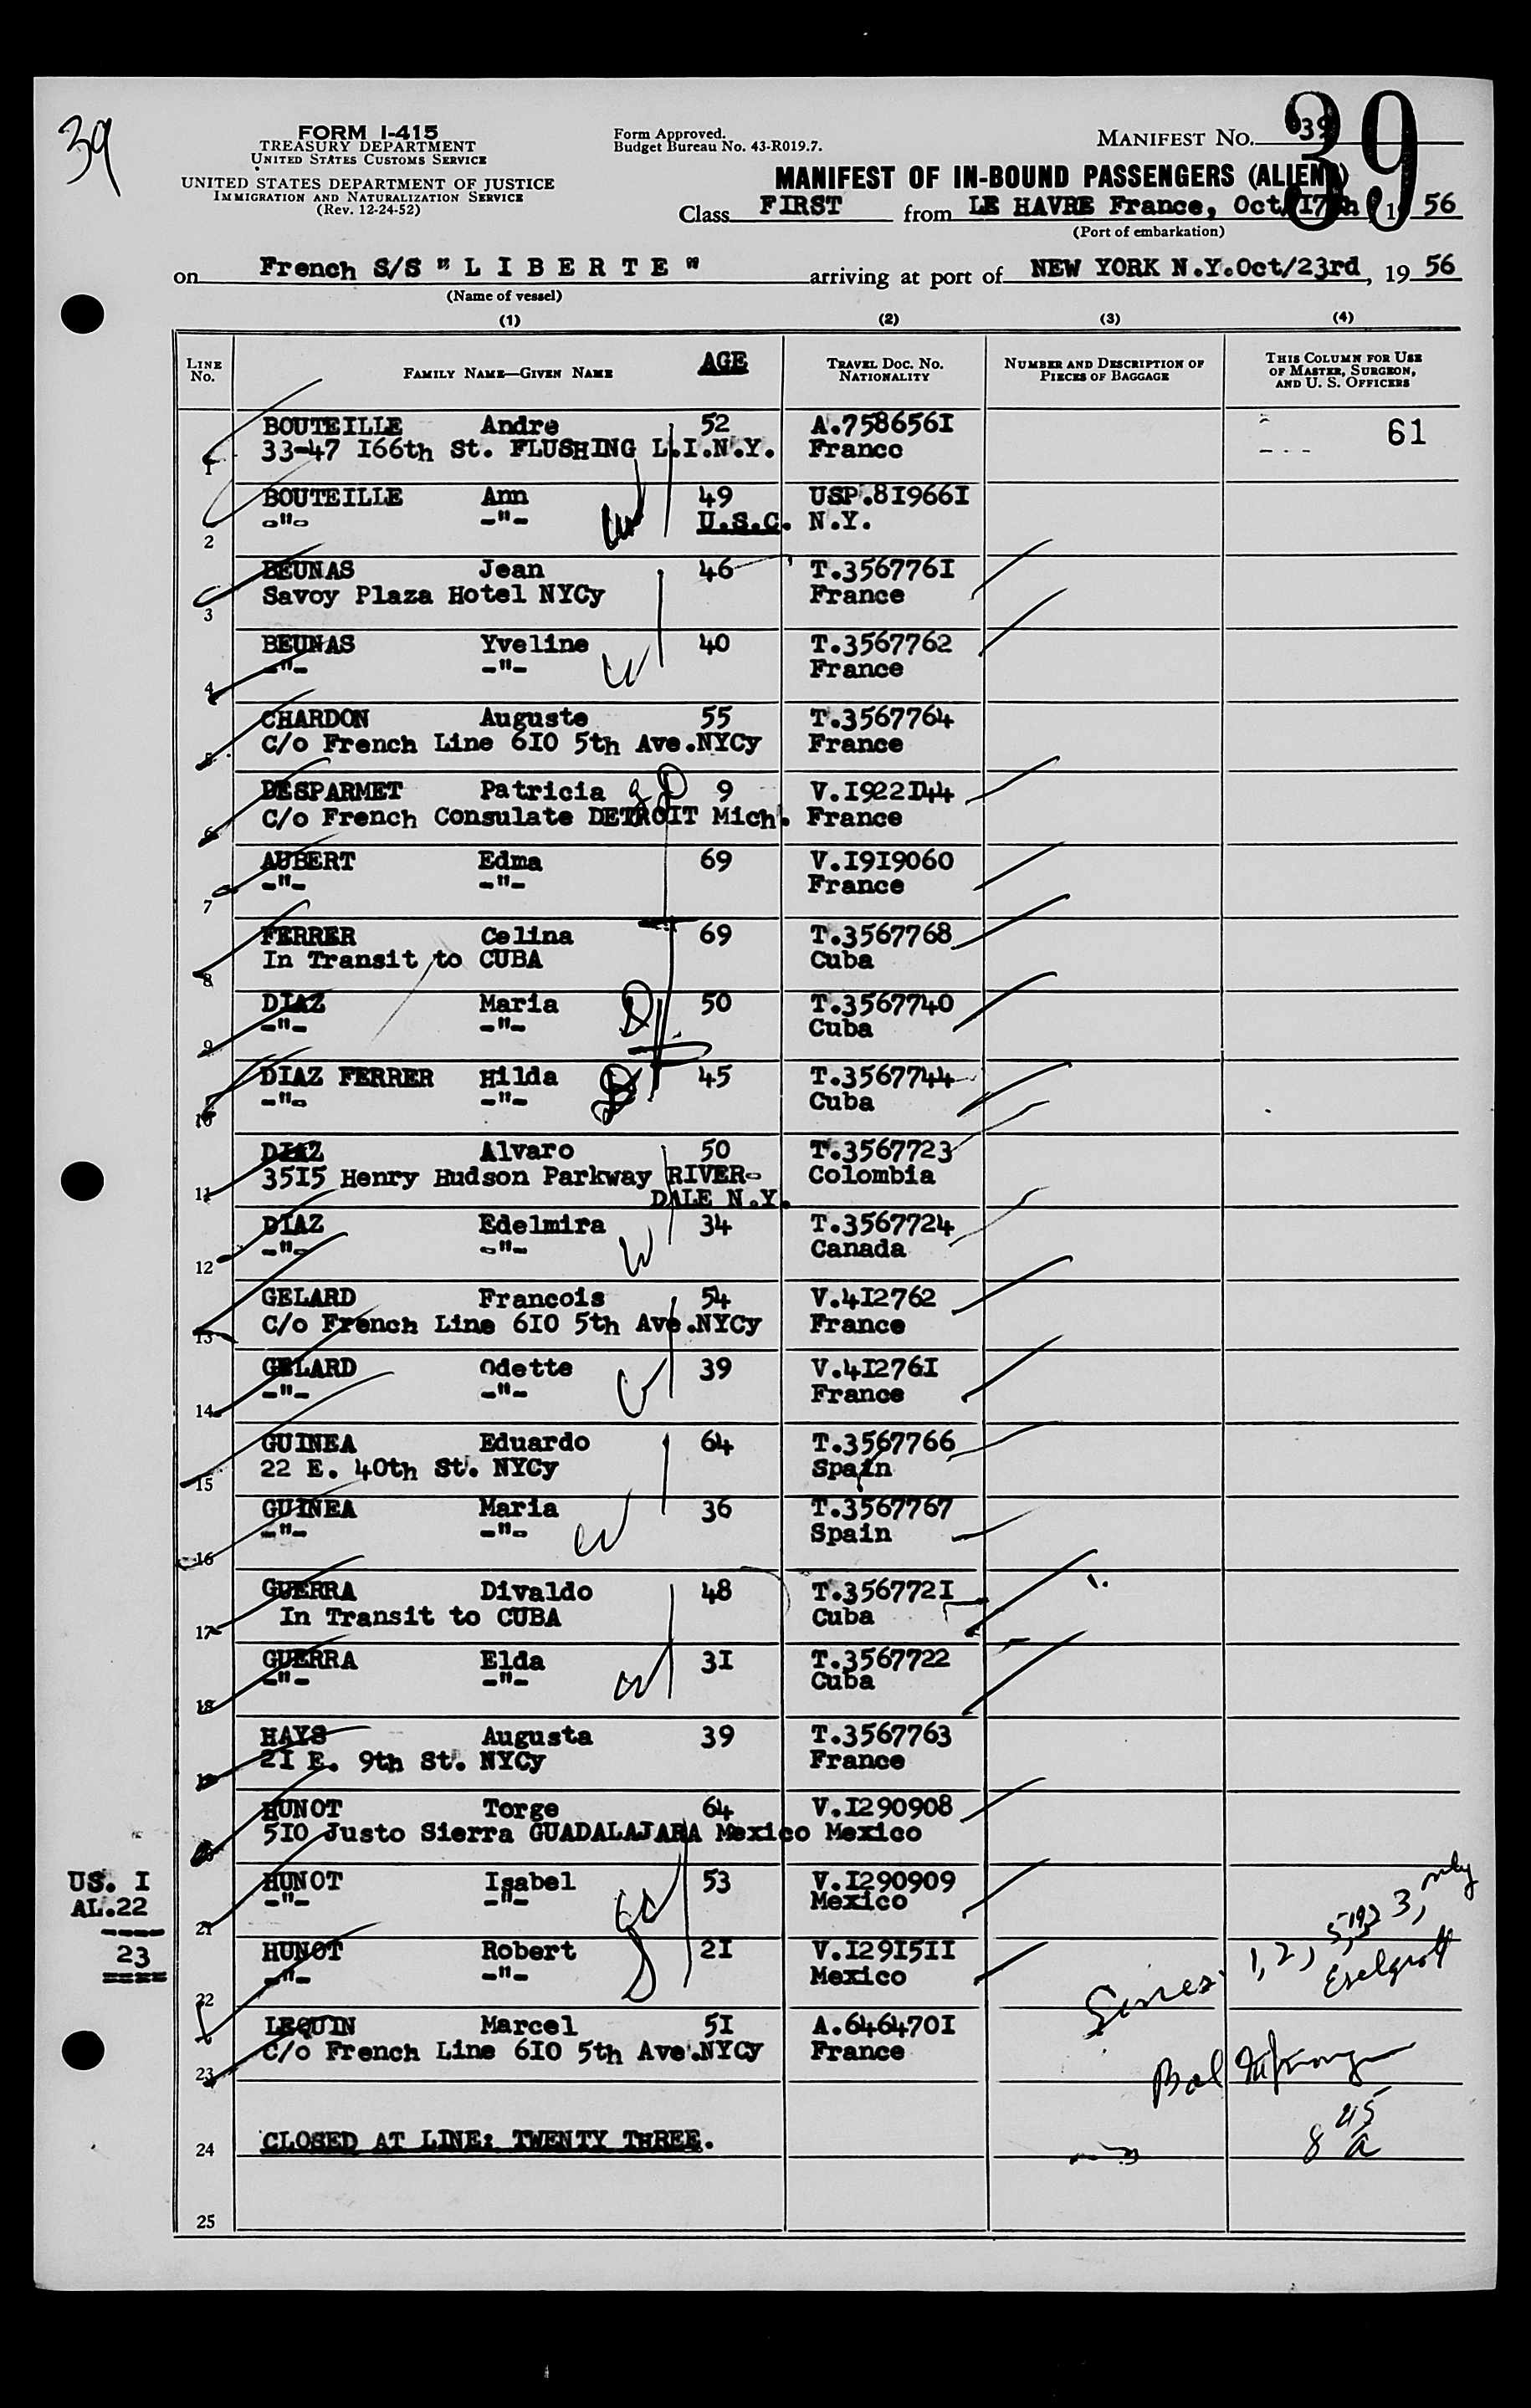 39
FORM I-415
TREASURY DEPARTMENT
UNITED STATES CUSTOMS SERVICE
UNITED STATES DEPARTMENT OF JUSTICE
IMMIGRATION AND NATURALIZATION SERVICE
(Rev. 12-24-52)
Form Approved.
Budget Bureau No. 43-R019.7.
MANIFEST NO. 39
39
MANIFEST OF IN-BOUND PASSENGERS (ALIENS)
Class FIRST from LE HAVRE France, Oct/17th, 1956
(Port of embarkation)
on French S/S "L I B E R T E" arriving at port of NEW YORK N.Y. Oct/23rd, 1956
(Name of vessel)
(1) (2) (3) (4)
LINE No. FAMILY NAME—GIVEN NAME AGE TRAVEL DOC. NO. NATIONALITY NUMBER AND DESCRIPTION OF PIECES OF BAGGAGE THIS COLUMN FOR USE OF MASTER, SURGEON, AND U. S. OFFICERS
1 BOUTEILLE Andre 52 A.758656I 61
33-47 I66th St. FLUSHING L.I.N.Y. France
2 BOUTEILLE Ann 49 USP.8I966I
-"- -"- U.S.C. N.Y.
3 BEUNAS Jean 46 T.356776I
Savoy Plaza Hotel NYCy France
4 BEUNAS Yveline 40 T.3567762
-"- -"- France
5 CHARDON Auguste 55 T.3567764
C/o French Line 6I0 5th Ave.NYCy France
6 DESPARMET Patricia 9 V.I922I44
C/o French Consulate DETROIT Mich. France
7 AUBERT Edma 69 V.I9I9060
-"- -"- France
8 FERRER Celina 69 T.3567768
In Transit to CUBA Cuba
9 DIAZ Maria 50 T.3567740
-"- -"- Cuba
10 DIAZ FERRER Hilda 45 T.3567744
-"- -"- Cuba
11 DIAZ Alvaro 50 T.3567723
35I5 Henry Hudson Parkway RIVER- Colombia
DALE N.Y.
12 DIAZ Edelmira 34 T.3567724
-"- -"- Canada
13 GELARD Francois 54 V.4I2762
C/o French Line 6I0 5th Ave.NYCy France
14 GELARD Odette 39 V.4I276I
-"- -"- France
15 GUINEA Eduardo 64 T.3567766
22 E. 40th St. NYCy Spain
16 GUINEA Maria 36 T.3567767
-"- -"- Spain
17 GUERRA Divaldo 48 T.356772I
In Transit to CUBA Cuba
18 GUERRA Elda 3I T.3567722
-"- -"- Cuba
19 HAYS Augusta 39 T.3567763
2I E. 9th St. NYCy France
20 HUNOT Torge 64 V.I290908
5I0 Justo Sierra GUADALAJARA Mexico Mexico
21 HUNOT Isabel 53 V.I290909
-"- -"- Mexico
US. I
AL.22
----
23
====
22 HUNOT Robert 2I V.I29I5II
-"- -"- Mexico
23 LEQUIN Marcel 5I A.646470I
C/o French Line 6I0 5th Ave.NYCy France
24 CLOSED AT LINE: TWENTY THREE.
25